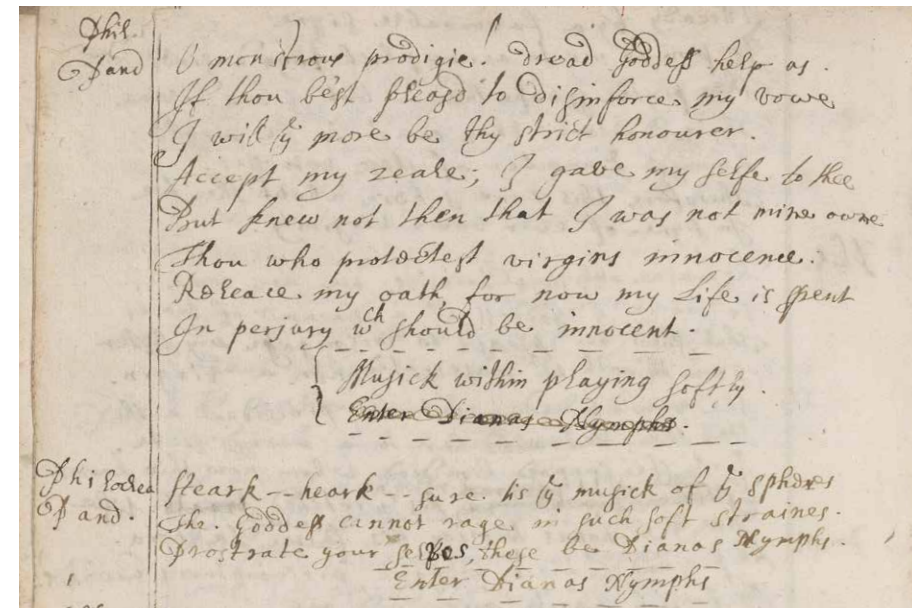 Phil.
Pand
O monstrous prodigie! dread Goddess help us.
If thou be'st pleasd to disinforce my vowe
I will ye more be thy strict honourer.
Accept my zeale; I gave my selfe to thee
But knew not then that I was not mine owne
Thou who protectest virgins innocence.
Releace my oath, for now my Life is spent
In perjury wch should be innocent.
Musick within playing softly.
Enter Dianas Nymphs.
Philoclea
Pand.
Heark -- heark -- sure tis ye musick of ye spheres
The Goddess cannot rage in such soft straines.
Prostrate your selves, these be Dianas Nymphs.
Enter Dianas Nymphs